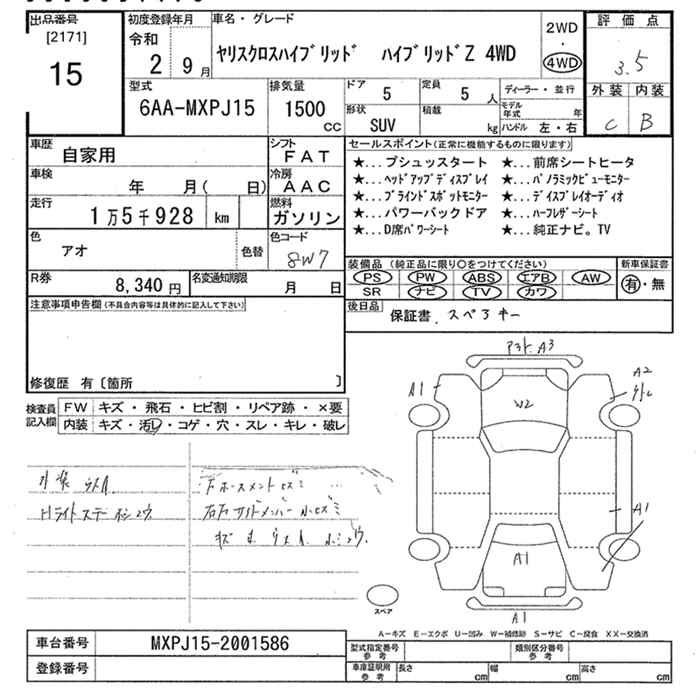 出品番号
[2171]
15
初度登録年月
令和
2 9月
車名・グレード
ヤリスクロスハイブリッド ハイブリッドZ 4WD
2WD
・
4WD
評価点
3.5
外装 内装
C B
型式
6AA-MXPJ15
排気量
1500
CC
ドア
5
定員
5 人
形状
SUV
積載
kg
ディーラー・並行
モデル年式 年
ハンドル 左・右
車歴
自家用
シフト
FAT
車検
年 月( 日)
冷房
AAC
走行
1万5千928 km
燃料
ガソリン
色
アオ
色替
色コード
8W7
R券
8,340円
名変通知期限
月 日
セールスポイント(正常に機能するものに限ります)
★...プシュッスタート ★...前席シートヒータ
★...ヘッドアップディスプレイ ★...パノラミックビューモニター
★...ブラインドスポットモニター ★...ディスプレイオーディオ
★...パワーバックドア ★...ハーフレザーシート
★...D席パワーシート ★...純正ナビ。TV
装備品 (純正品に限り○をつけてください)
PS PW ABS エアB AW
SR ナビ TV カワ
新車保証書
有・無
後日品
保証書、スペアキー
注意事項申告欄(不具合内容等は具体的に記入して下さい)
修復歴 有〔箇所 〕
検査員記入欄
FW キズ・飛石・ヒビ割・リペア跡・×要
内装 キズ・汚レ・コゲ・穴・スレ・キレ・破レ
外装
Hライトステー
下ホースメント
右下サイドメンバー
キズ
A3
A1
A2
W2
A1
A1
A1
スペア
A-キズ E-エクボ U-凹み W-補修跡 S-サビ C-腐食 XX-交換済
車台番号
MXPJ15-2001586
登録番号
型式指定番号 参考
類別区分番号 参考
車庫証明用 参考
長さ cm
幅 cm
高さ cm